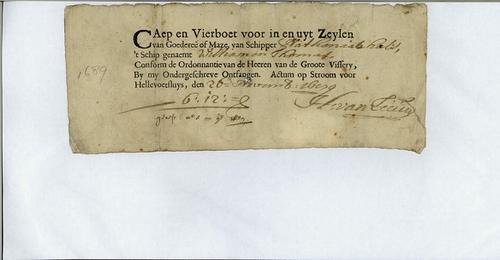 CAep en Vierboet voor in en uyt Zeylen
van Goedereé of Maze, van Schipper Nathaniel
't Schip genaemt William en Thomas
Conform de Ordonnantie van de Heeren van de Groote Vissery,
By my Ondergeschreve Ontfangen. Actum op Stroom voor
Hellevoetsluys, den 26 November 1689
1689
6:12: